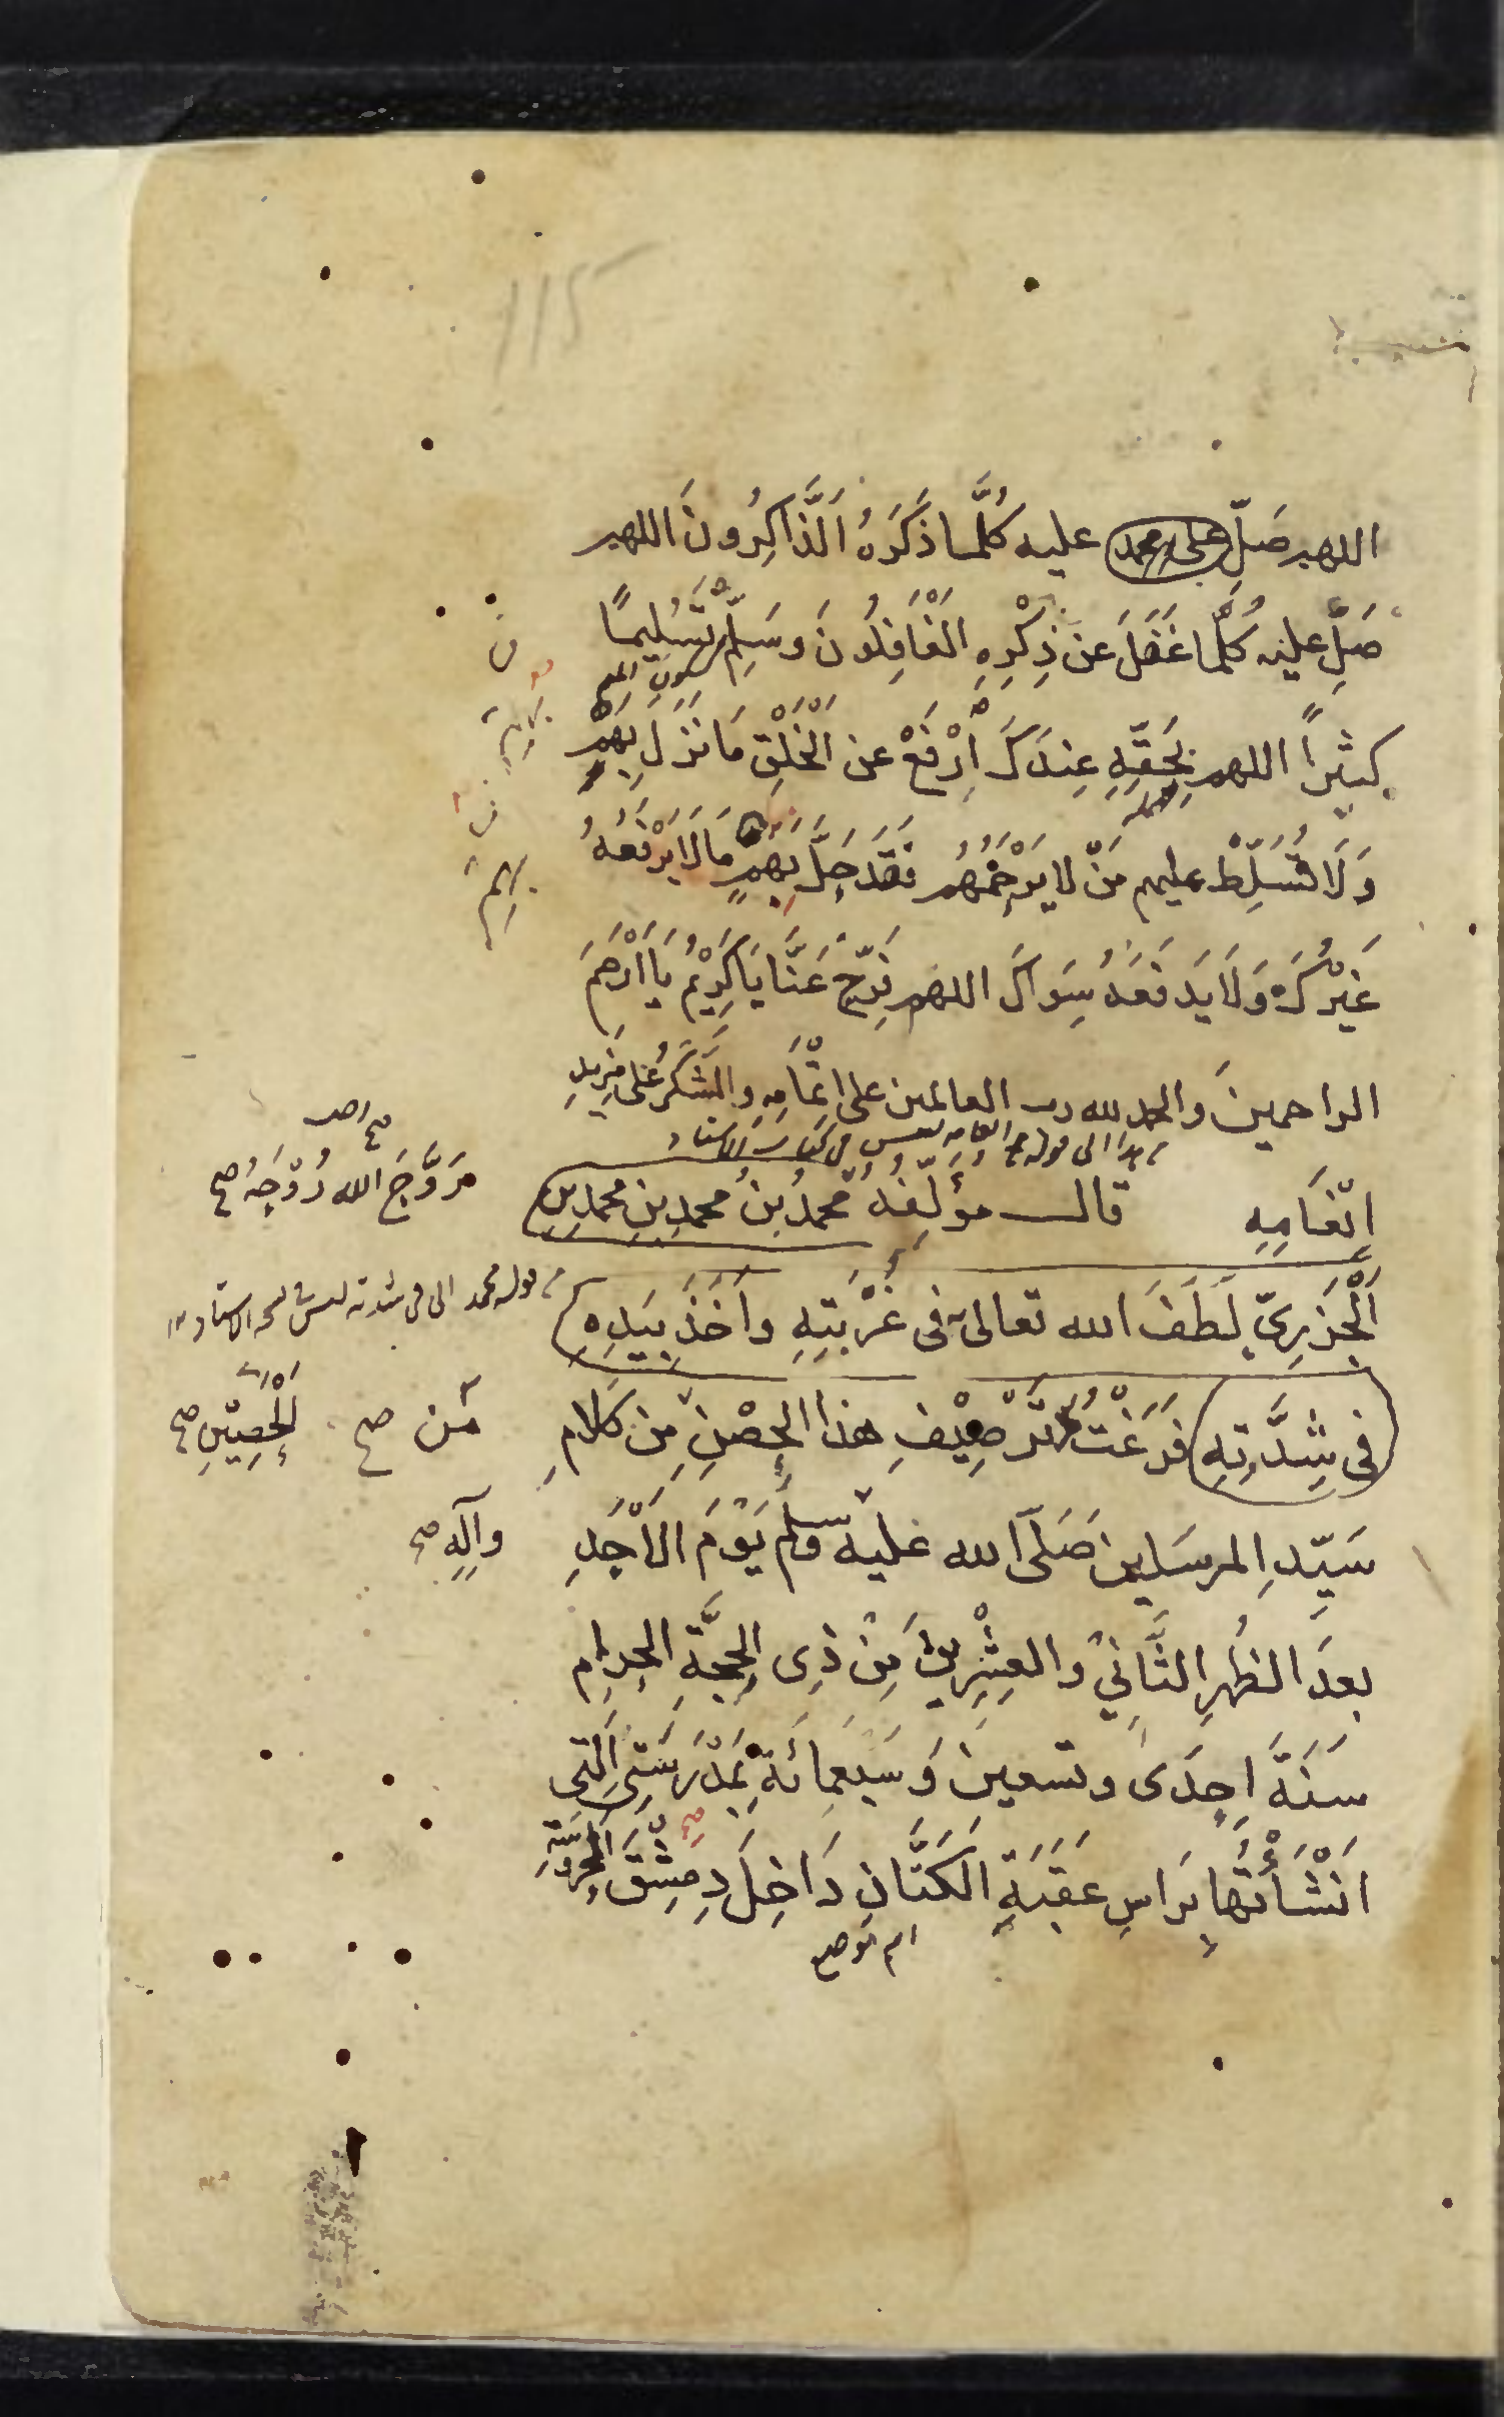 115
اللهم صَلِّ على محمد عليه كُلَّمَا ذَكَرَهُ الذَّاكِرُونَ اللهم
صَلِّ عليه كُلَّمَا غَفَلَ عَن ذِكْرِهِ الْغَافِلُونَ وَسَلِّمْ تَسْلِيمًا
كثيرًا اللهم بِحَقِّهِ عِندَكَ اِرْفَعْ عن الْخَلْقِ مَا نَزَلَ بِهِمْ
وَلَا تُسَلِّطْ عليهم مَنْ لا يَرْحَمُهُم فَقَد حَلَّ بِهِمْ مَا لَا يَرْفَعُهُ
غَيْرُكَ وَلَا يَدفَعُهُ سِوَاكَ اللهم فَرِّجْ عَنَّا يَا كَرِيْمُ يَا اَرْحَمَ
الراحمينَ والحمد لله رب العالمين على اِتْمَامِهِ والشُّكْرُ عَلَى مَزِيدِ
اِنْعَامِهِ قال مؤلِّفُهُ محمدُ بنُ محمدِ بنِ محمدِ بنِ
رَوَّحَ الله رُوْحَهُ صح
الْجَزَرِيّ لَطَفَ الله تعالى فى غُرْبَتِهِ وَاَخَذَ بِيَدِهِ
فى شِدَّتِهِ فَرَغْتُ تَرْصِيْفِ هذا الْحِصْنِ مِن كَلَامِ
مِن صح
الْحَصِيْنِ صح
سَيِّدِ المرسَلِين صَلَّى الله عليه وسلم يَوْمَ الْاَحَدِ
وآلِهِ صح
بعدَ الظُهرِ الثَّانِيْ والعِشْرِين مِنْ ذِى الحِجَّةِ الحرام
سَنَةَ اِحدَى وتسعينَ وَسَبعِمِائَةٍ بِمَدْرَسَتِى الَّتِى
اَنْشَأْتُهَا بِرَاسِ عَقَبَةِ الكَتَّانِ دَاخِلَ دِمَشْقَ الْمَحْرُوسَةِ
اسم موضع